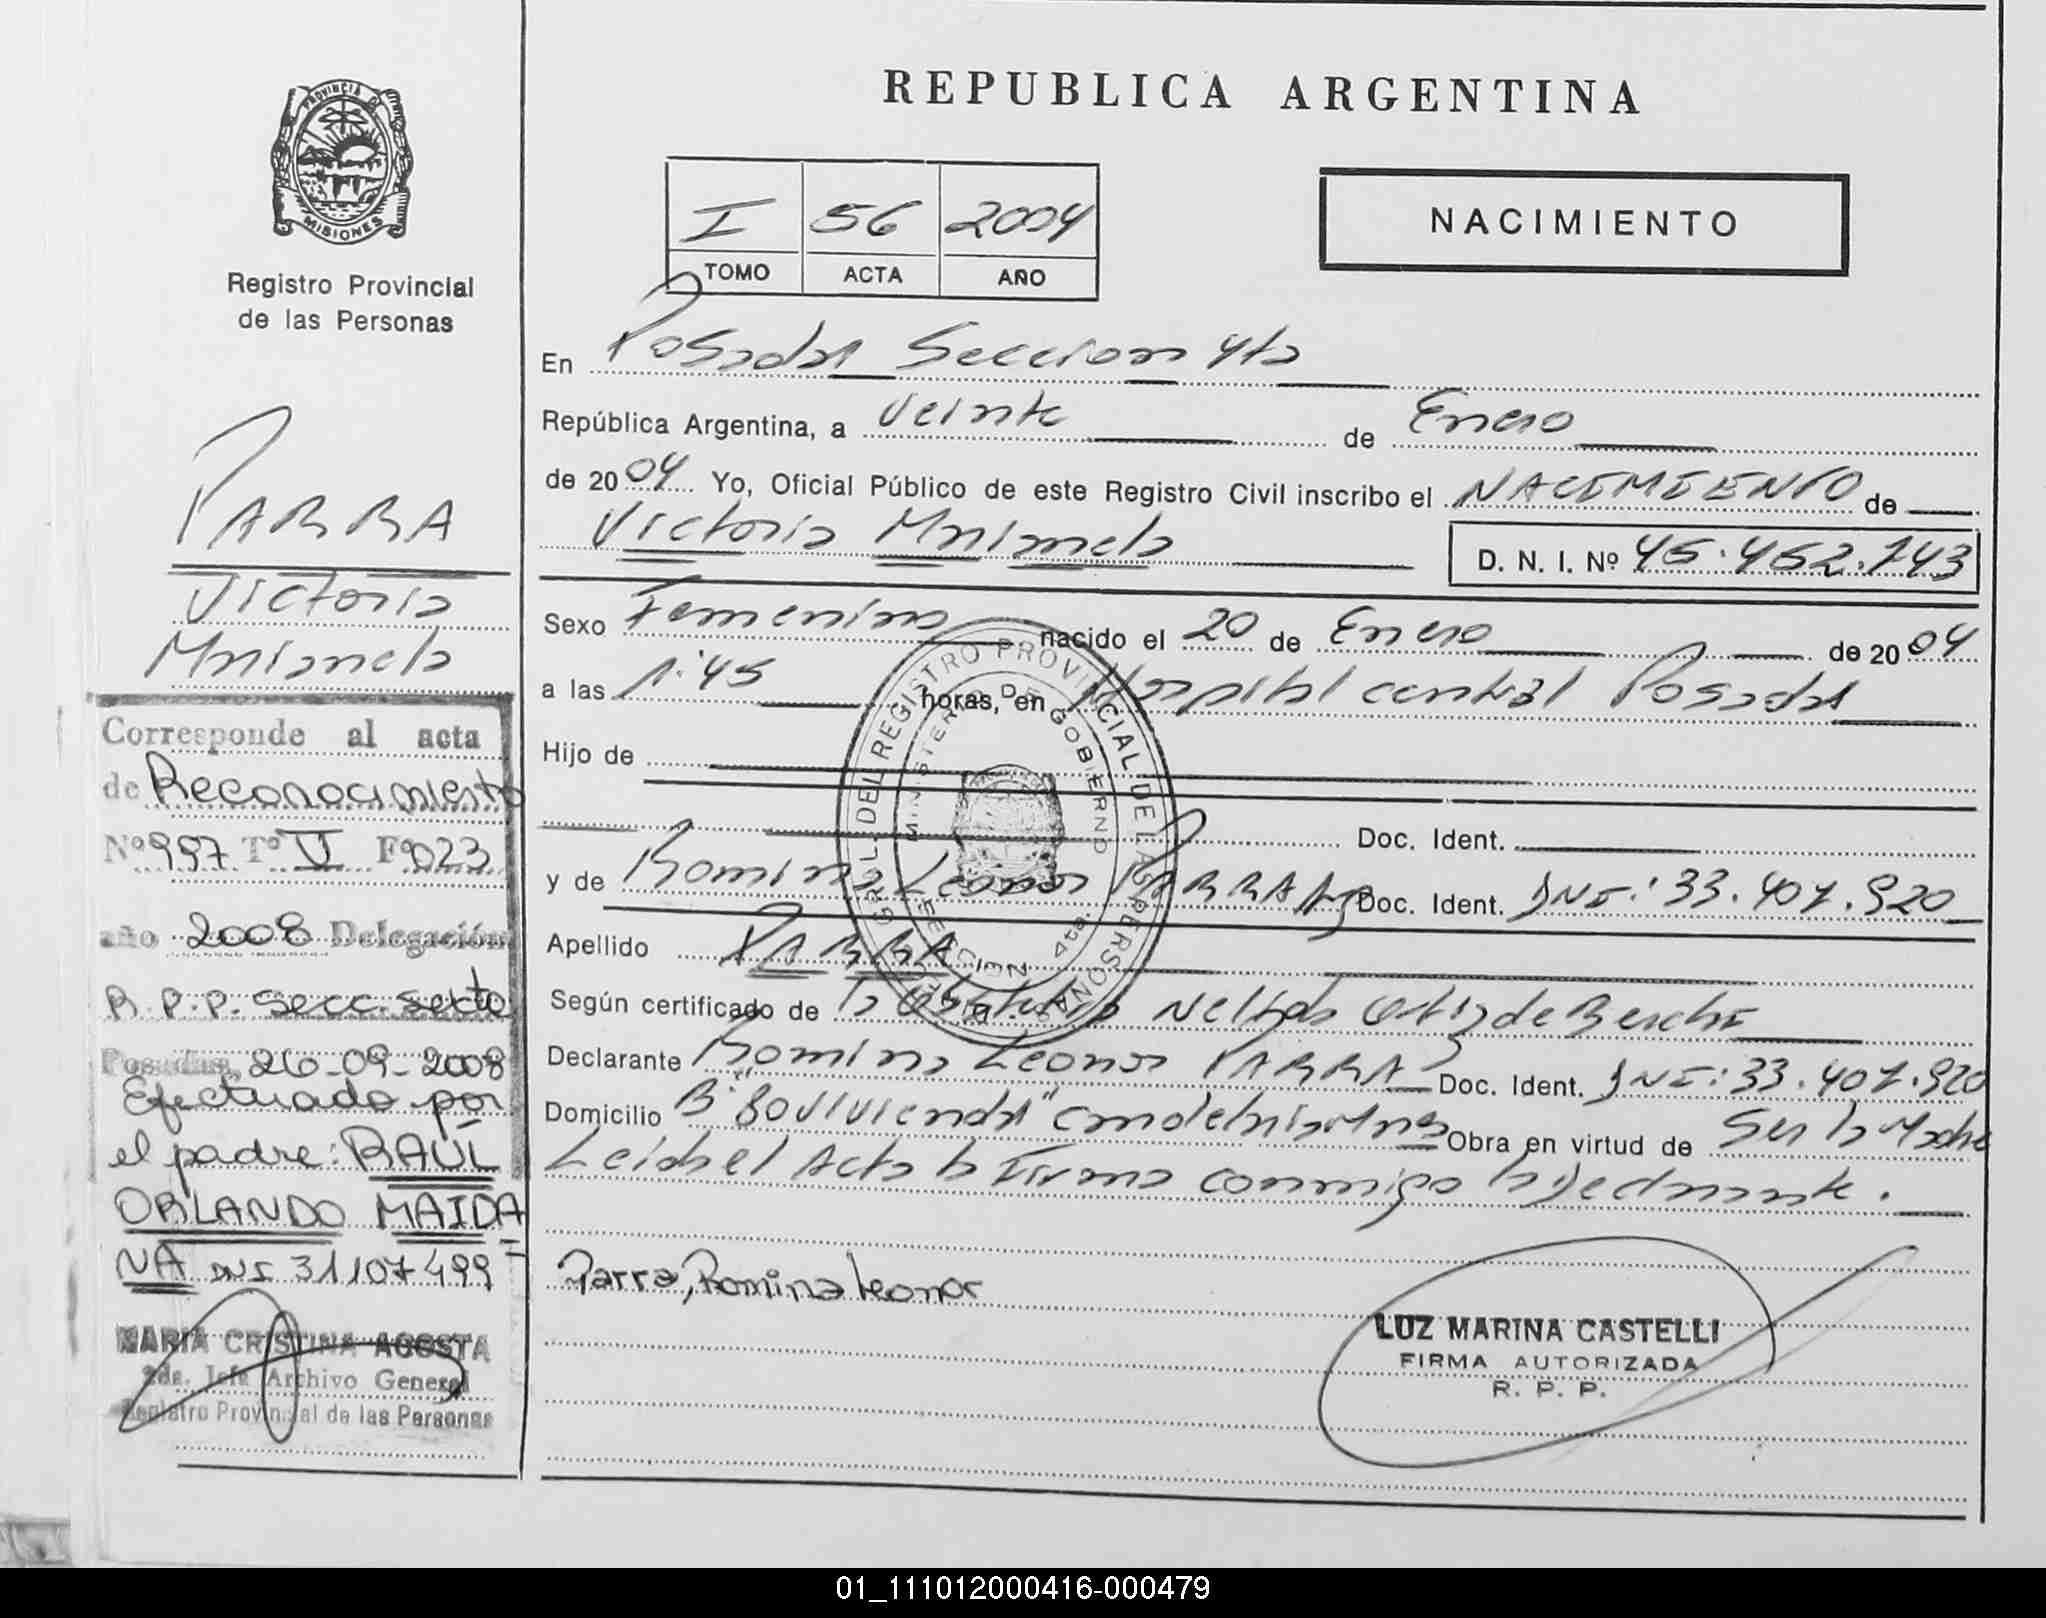 PROVINCIA DE
MISIONES
Registro Provincial
de las Personas
PARRA
Victoria
Marianela
Corresponde al acta
de Reconocimiento
Nº 997 Tº V Fº 023
año 2008 Delegación
R.P.P. Secc. Sexta
Posadas, 26-09-2008
Efectuado por
el padre: RAÚL
ORLANDO MAIDA
NA DNI 31107499
MARIA CRISTINA ACOSTA
2da. Jefe Archivo General
Registro Provincial de las Personas
REPUBLICA ARGENTINA
I 56 2004
TOMO ACTA AÑO
NACIMIENTO
En Posadas Seccion 4ta
República Argentina, a Veinte de Enero
de 2004 Yo, Oficial Público de este Registro Civil inscribo el NACIMIENTO de
Victoria Marianela D. N. I. Nº 45.452.743
Sexo Femenino nacido el 20 de Enero de 2004
a las 1:45 horas, en Hospital central Posadas
Hijo de
Doc. Ident.
y de Romina Leonor PARRA Doc. Ident. DNI: 33.407.920
Apellido PARRA
Según certificado de la Obstetra Ortiz de
Declarante Romina Leonor PARRA Doc. Ident. DNI: 33.407.920
Domicilio Bº "80 viviendas" Candelaria Mnes Obra en virtud de Ser la Madre
Leida el Acta la Firma conmigo la declarante.
Parra, Romina Leonor
LUZ MARINA CASTELLI
FIRMA AUTORIZADA
R. P. P.
GRAL. DEL REGISTRO PROVINCIAL DE LAS PERSONAS
MINISTERIO DE GOBIERNO
SECCION 4ta.
01_111012000416-000479